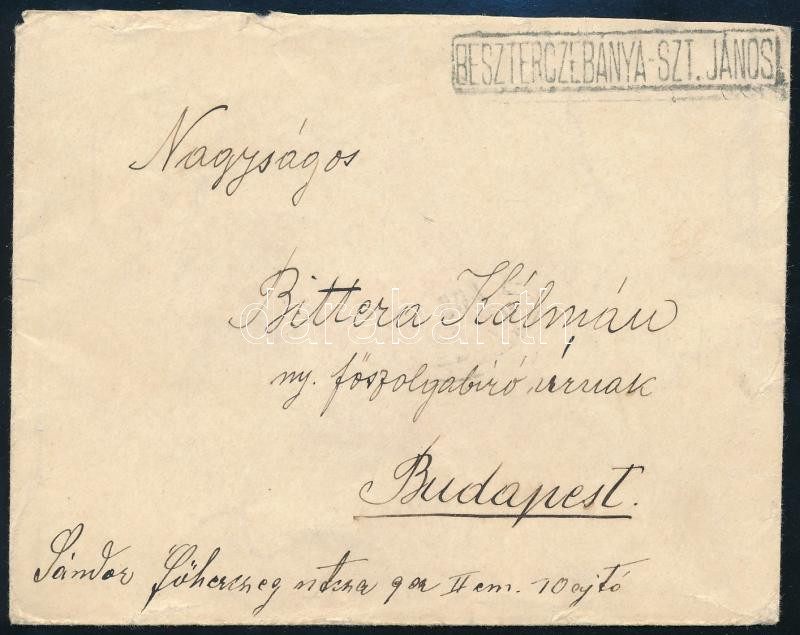 BESZTERCZEBÁNYA-SZT. JÁNOS
Nagyságos
Bittera Kálmán
darabanth
ny. főszolgabíró úrnak
Budapest.
Sándor főherczeg utcza II em. 10 ajtó